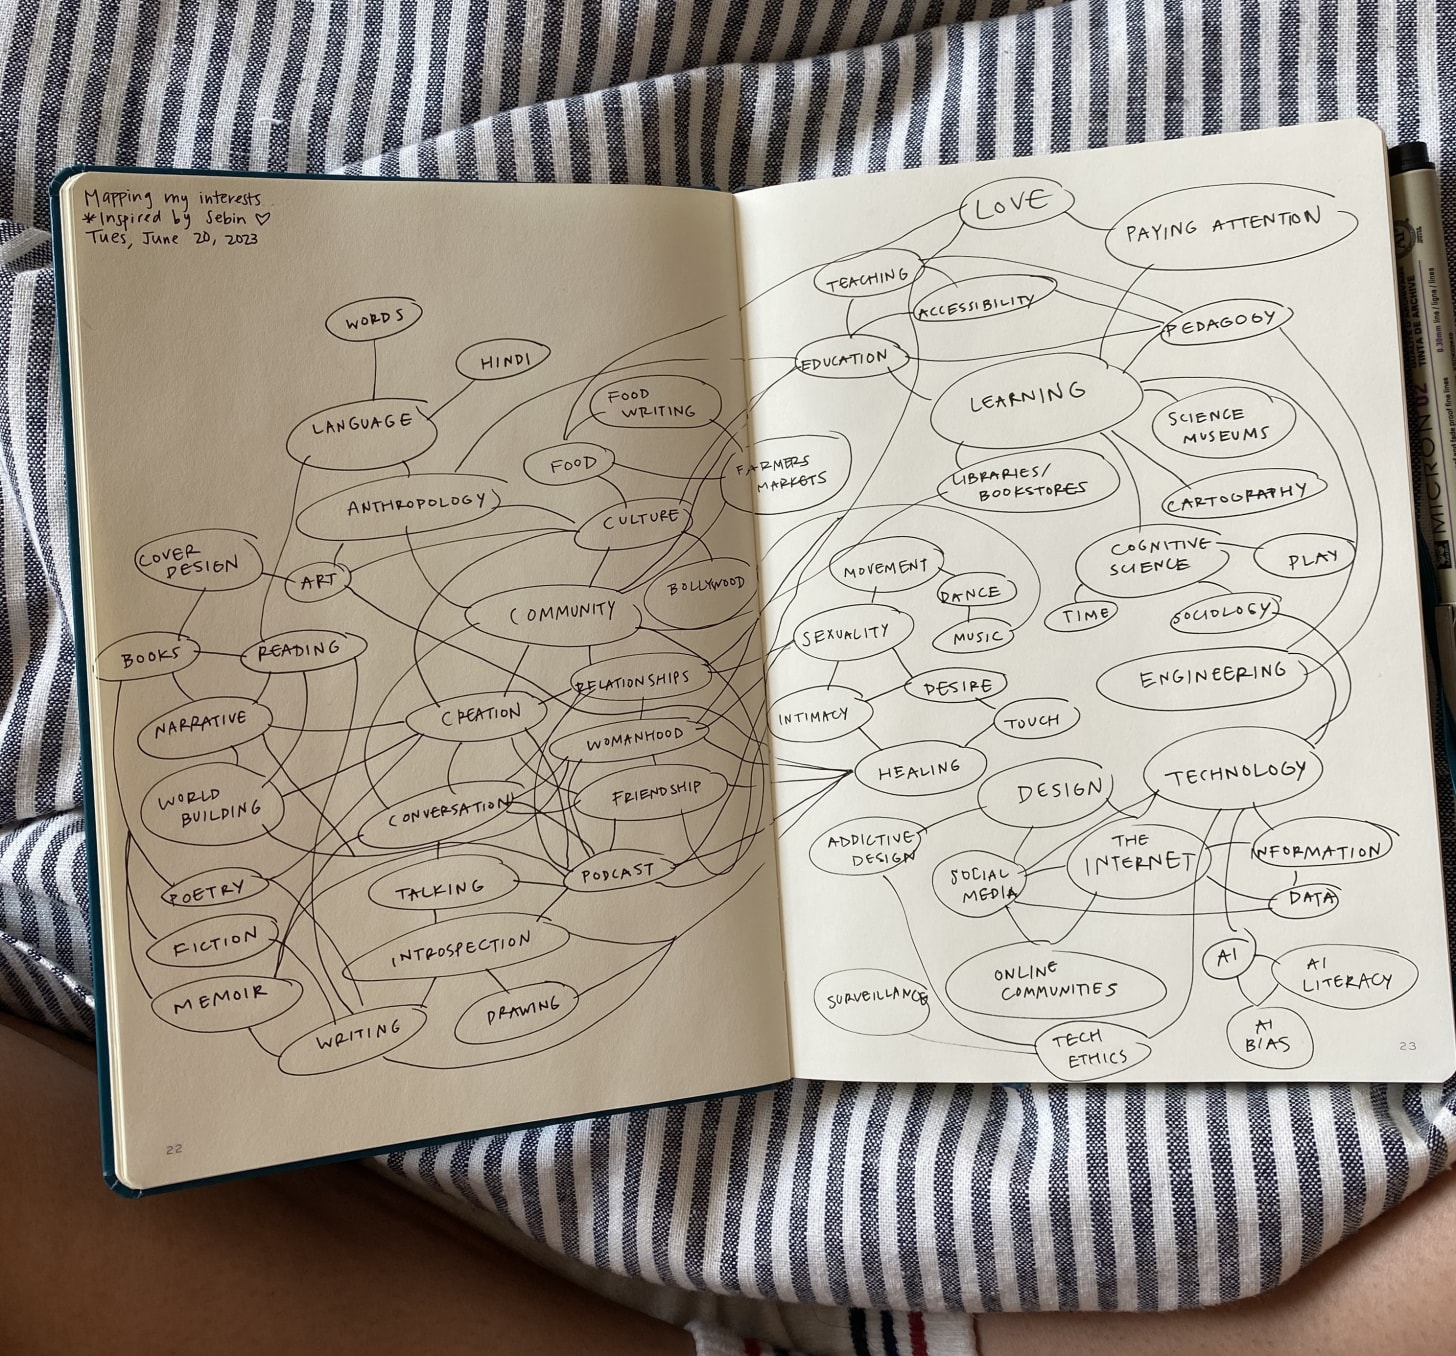 Mapping my interests
*Inspired by Sebin ♡
Tues, June 20, 2023
WORDS
HINDI
LANGUAGE
FOOD
WRITING
FOOD
FARMERS
MARKETS
ANTHROPOLOGY
CULTURE
COVER
DESIGN
ART
BOLLYWOOD
COMMUNITY
BOOKS
READING
RELATIONSHIPS
NARRATIVE
CREATION
WOMANHOOD
WORLD
BUILDING
CONVERSATION
FRIENDSHIP
POETRY
TALKING
PODCAST
FICTION
INTROSPECTION
MEMOIR
WRITING
DRAWING
22
LOVE
PAYING ATTENTION
TEACHING
ACCESSIBILITY
PEDAGOGY
EDUCATION
LEARNING
SCIENCE
MUSEUMS
LIBRARIES/
BOOKSTORES
CARTOGRAPHY
MOVEMENT
COGNITIVE
SCIENCE
PLAY
DANCE
TIME
SOCIOLOGY
SEXUALITY
MUSIC
DESIRE
ENGINEERING
INTIMACY
TOUCH
HEALING
DESIGN
TECHNOLOGY
ADDICTIVE
DESIGN
THE
INTERNET
INFORMATION
SOCIAL
MEDIA
DATA
AI
AI
LITERACY
ONLINE
COMMUNITIES
SURVEILLANCE
TECH
ETHICS
AI
BIAS
23
MICRON 02
TINTA DE ARCHIVE
0.30mm line / ligne / lines